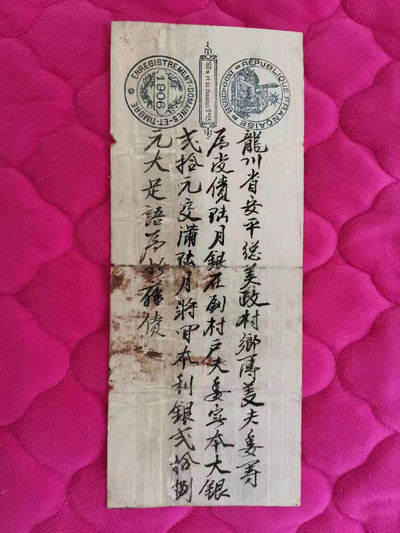 ENREGISTREMENT-DOMAINES-ET-TIMBRE
1906
RÉPUBLIQUE FRANÇAISE
龍川省安平總美政村鄉傅美夫妻等
爲債陆月銀在村戶夫妻寔本大銀
貳拾元交滿陆月將回本利銀貳拾捌
元大足語爲債